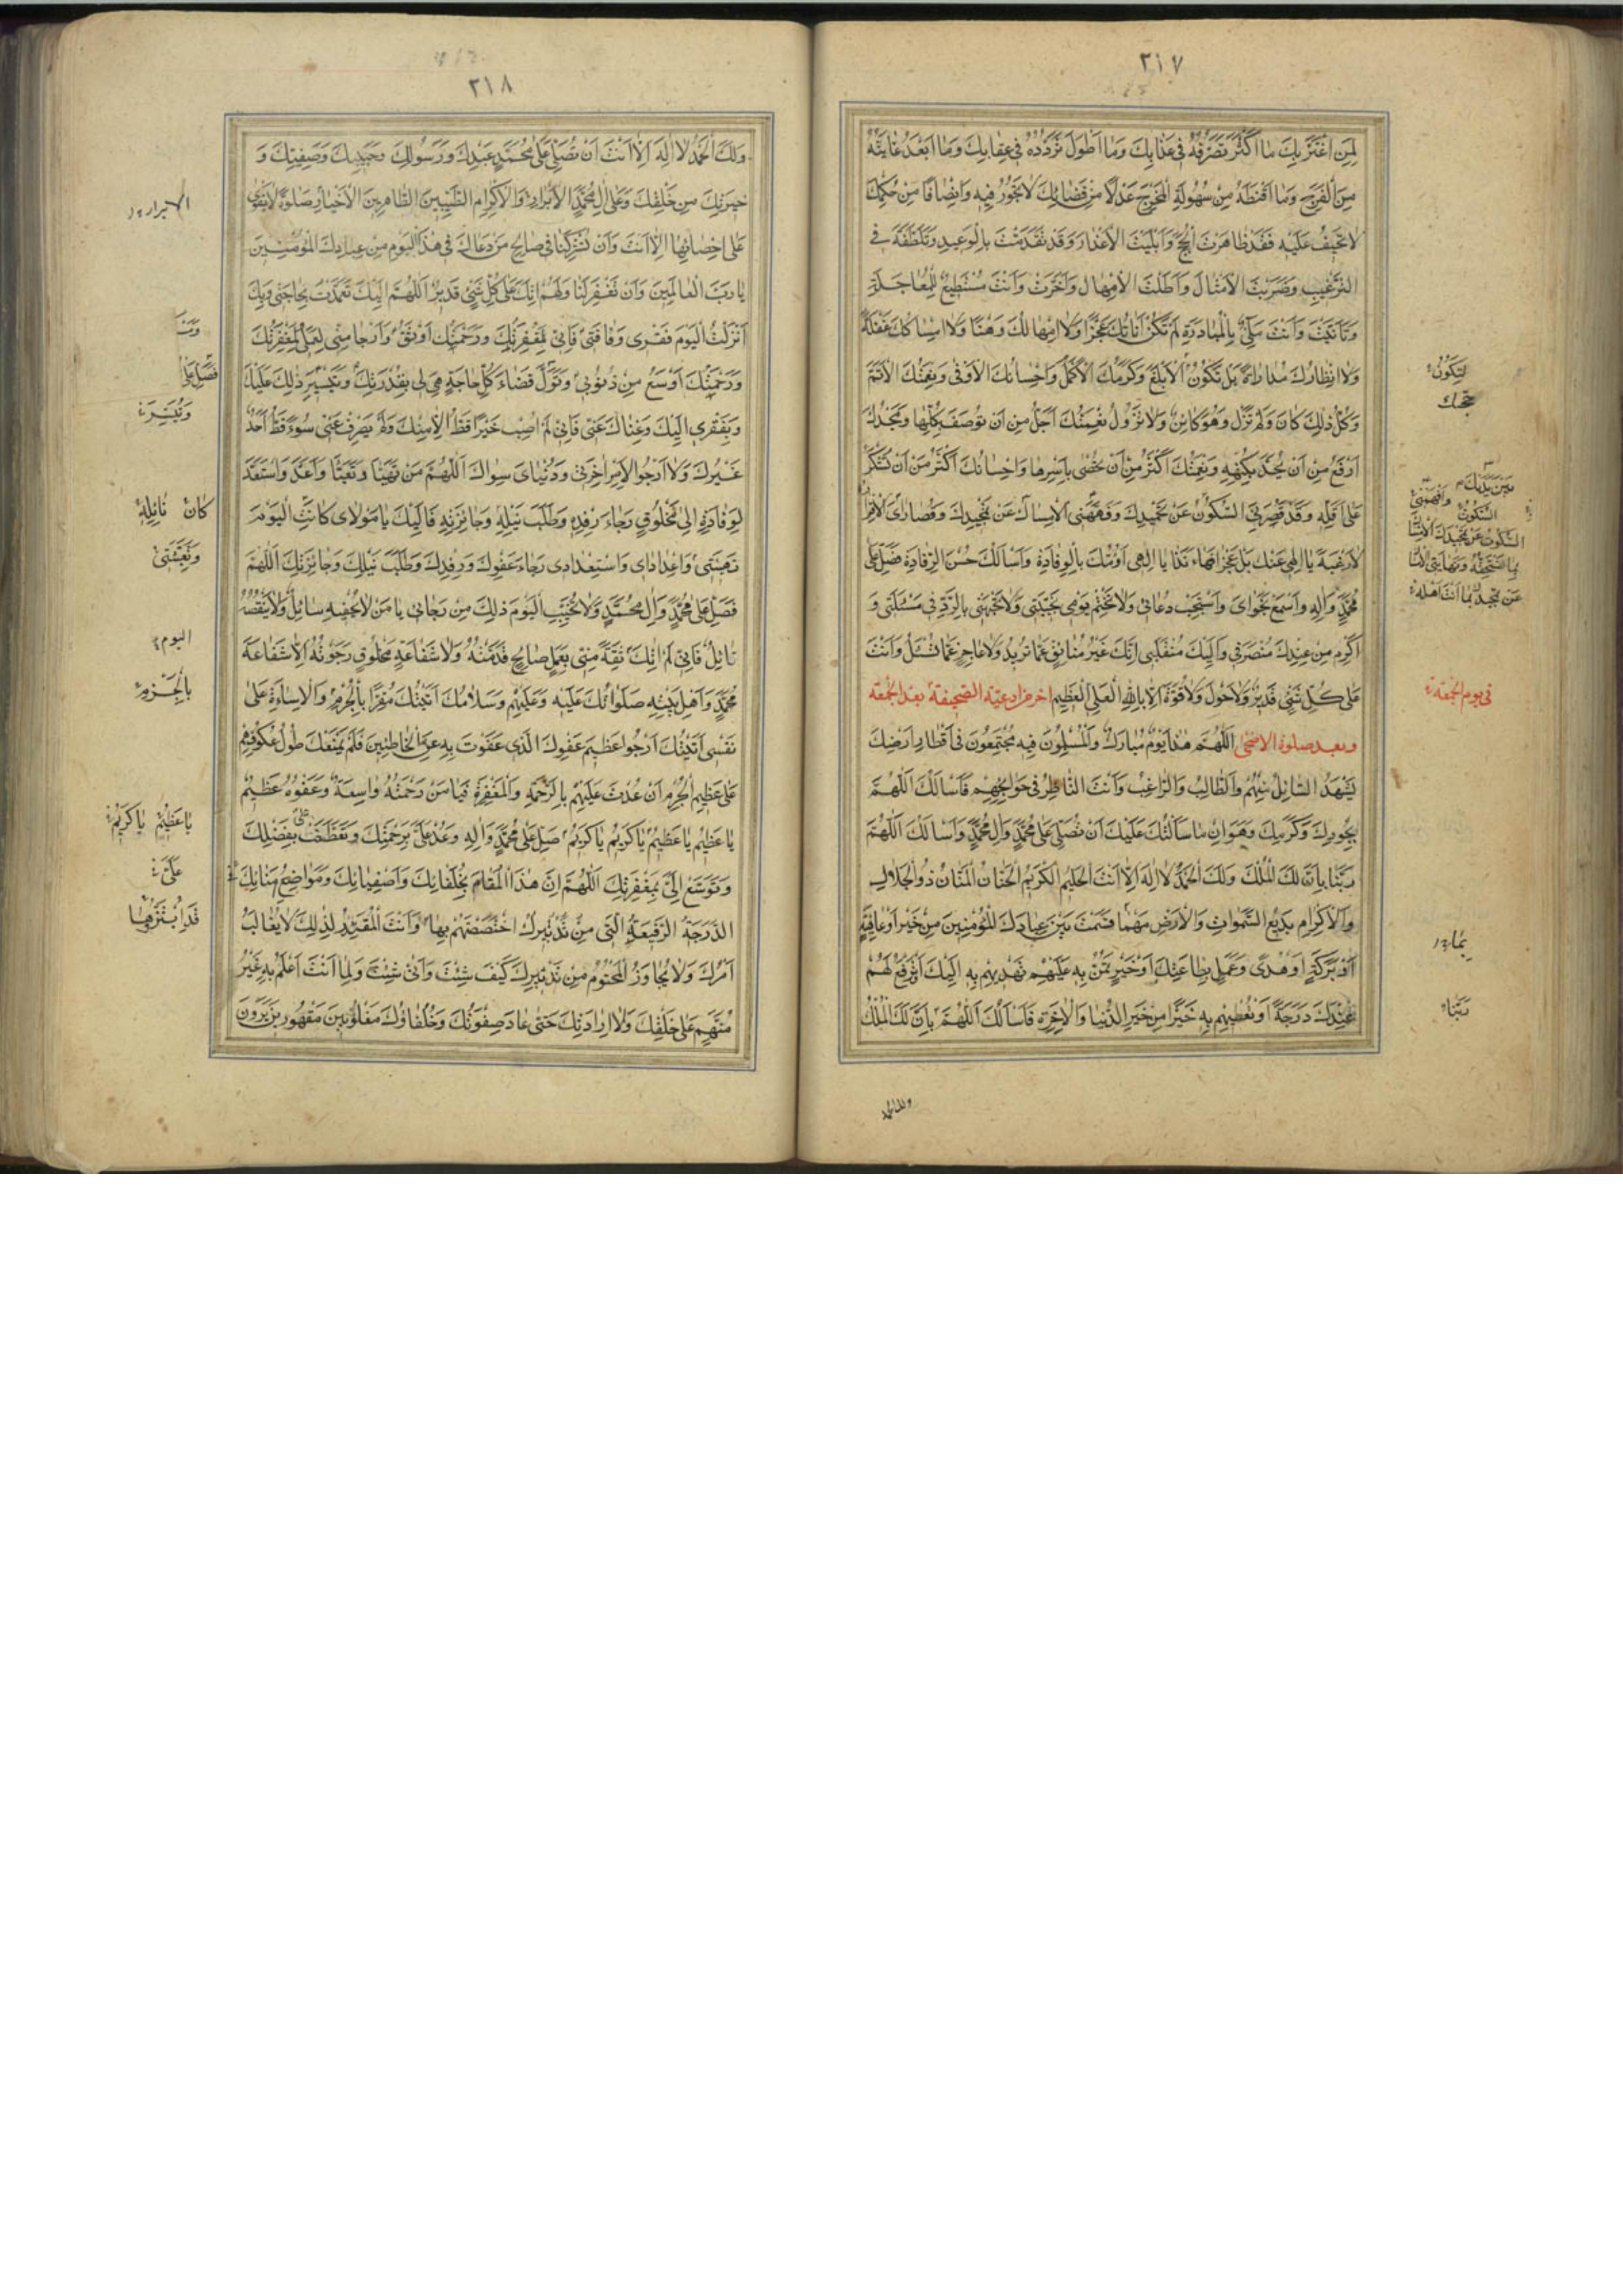 ٣١٧
لِمَنِ اغْتَرَّ بِكَ ما اَكْثَرَ تَصَرُّفَهُ فى عَذابِكَ وَما اَطْوَلَ تَرَدُّدَهُ فى عِقابِكَ وَما اَبْعَدَ غايَتَهُ
مِنَ الْفَرَجِ وَما اَقْنَطَهُ مِنْ سُهُولَةِ الْمَخْرَجِ عَدْلًا مِنْ قَضائِكَ لا تَجُورُ فيهِ وَاِنْصافًا مِنْ حُكْمِكَ
لا تَحيفُ عَلَيْهِ فَقَدْ ظاهَرْتَ الْحُجَجَ وَاَبْلَيْتَ الْاَعْذارَ وَقَدْ تَقَدَّمْتَ بِالْوَعيدِ وَتَلَطَّفْتَ فى
التَّرْغيبِ وَضَرَبْتَ الْاَمْثالَ وَاَطَلْتَ الْاِمْهالَ وَاَخَّرْتَ وَاَنْتَ مُسْتَطيعٌ لِلْمُعاجَلَةِ
وَتَاَنَّيْتَ وَاَنْتَ مَلِىءٌ بِالْمُبادَرَةِ لَمْ تَكُنْ اَناتُكَ عَجْزًا وَلا اِمْهالُكَ وَهْنًا وَلا اِمْساكُكَ غَفْلَةً
وَلا انْتِظارُكَ مُداراةً بَلْ تَكُونُ الْاَبْلَغَ وَكَرَمُكَ الْاَكْمَلَ وَاِحْسانُكَ الْاَوْفى وَنِعْمَتُكَ الْاَتَمَّ
لِتَكُونَ
حُجَّتُكَ
وَكُلُّ ذلِكَ كانَ وَلَمْ تَزَلْ وَهُوَ كائِنٌ وَلا تَزُولُ نِعْمَتُكَ اَجَلُّ مِنْ اَنْ تُوصَفَ بِكُلِّها وَمَجْدُكَ
اَرْفَعُ مِنْ اَنْ يُحَدَّ بِكُنْهِهِ وَنِعْمَتُكَ اَكْثَرُ مِنْ اَنْ تُحْصى بِاَسْرِها وَاِحْسانُكَ اَكْثَرُ مِنْ اَنْ تُشْكَرَ
عَلى اَقَلِّهِ وَقَدْ قَصَّرَ بِىَ السُّكُوتُ عَنْ تَحْميدِكَ وَفَهَّهَنِى الْاِمْساكُ عَنْ تَمْجيدِكَ وَقُصاراىَ الْاِقْرارُ
السُّكُوتُ
لا رَغْبَةً يا اِلهى عَنْكَ بَلْ عَجْزًا فَها اَنَا ذا يا اِلهى اَؤُمُّكَ بِالْوِفادَةِ وَاَسْاَلُكَ حُسْنَ الرِّفادَةِ فَصَلِّ عَلى
مُحَمَّدٍ وَالِهِ وَاسْمَعْ نَجْواىَ وَاسْتَجِبْ دُعائى وَلا تَخْتِمْ يَوْمى بِخَيْبَتى وَلا تَجْبَهْنى بِالرَّدِّ فى مَسْئَلَتى وَ
اَكْرِمْ مِنْ عِنْدِكَ مُنْصَرَفى وَاِلَيْكَ مُنْقَلَبى اِنَّكَ غَيْرُ ضائِقٍ عَمّا تُريدُ وَلا عاجِزٍ عَمّا تُسْئَلُ وَاَنْتَ
عَلى كُلِّ شَىْءٍ قَديرٌ وَلا حَوْلَ وَلا قُوَّةَ اِلّا بِاللهِ الْعَلِىِّ الْعَظيمِ اخر من ادعية الصحيفة بعد الجمعة
فى يوم الجمعة
وبعد صلوة الاضحى اَللّهُمَّ هذا يَوْمٌ مُبارَكٌ وَالْمُسْلِمُونَ فيهِ مُجْتَمِعُونَ فى اَقْطارِ اَرْضِكَ
يَشْهَدُ السّائِلُ مِنْهُمْ وَالطّالِبُ وَالرّاغِبُ وَاَنْتَ النّاظِرُ فى حَوائِجِهِمْ فَاَسْاَلُكَ اَللّهُمَّ
بِجُودِكَ وَكَرَمِكَ وَهَوانِ ما سَاَلْتُكَ عَلَيْكَ اَنْ تُصَلِّىَ عَلى مُحَمَّدٍ وَالِ مُحَمَّدٍ وَاَسْاَلُكَ اَللّهُمَّ
رَبَّنا بِاَنَّ لَكَ الْمُلْكَ وَلَكَ الْحَمْدُ لا اِلهَ اِلّا اَنْتَ الْحَليمُ الْكَريمُ الْحَنّانُ الْمَنّانُ ذُو الْجَلالِ
وَالْاِكْرامِ بَديعُ السَّمواتِ وَالْاَرْضِ مَهْما قَسَمْتَ بَيْنَ عِبادِكَ الْمُؤْمِنينَ مِنْ خَيْرٍ اَوْ عافِيَةٍ
اَوْ بَرَكَةٍ اَوْ هُدًى وَعَمَلٍ بِطاعَتِكَ اَوْ خَيْرٍ تَمُنُّ بِهِ عَلَيْهِمْ تَهْديهِمْ بِهِ اِلَيْكَ اَوْ تَرْفَعُ لَهُمْ
عِنْدَكَ دَرَجَةً اَوْ تُعْطيهِمْ بِهِ خَيْرًا مِنْ خَيْرِ الدُّنْيا وَالْاخِرَةِ فَاَسْاَلُكَ اَللّهُمَّ بِاَنَّ لَكَ الْمُلْكَ
رَبَّنا
ولك الحمد
٣١٨
وَلَكَ الْحَمْدُ لا اِلهَ اِلّا اَنْتَ اَنْ تُصَلِّىَ عَلى مُحَمَّدٍ عَبْدِكَ وَرَسُولِكَ وَحَبيبِكَ وَصَفِيِّكَ وَ
خِيَرَتِكَ مِنْ خَلْقِكَ وَعَلى الِ مُحَمَّدٍ الْاَبْرارِ وَالْاَكْرامِ الطَّيِّبينَ الطّاهِرينَ الْاَخْيارِ صَلوةً لا يَقْوى
عَلى اِحْصائِها اِلّا اَنْتَ وَاَنْ تُشْرِكَنا فى صالِحِ مَنْ دَعاكَ فى هذَا الْيَوْمِ مِنْ عِبادِكَ الْمُؤْمِنينَ
يا رَبَّ الْعالَمينَ وَاَنْ تَغْفِرَ لَنا وَلَهُمْ اِنَّكَ عَلى كُلِّ شَىْءٍ قَديرٌ اَللّهُمَّ اِلَيْكَ تَعَمَّدْتُ بِحاجَتى وَبِكَ
اَنْزَلْتُ الْيَوْمَ فَقْرى وَفاقَتى فَاِنّى لِمَغْفِرَتِكَ وَرَحْمَتِكَ اَوْثَقُ وَاَرْجا مِنّى لِعَمَلى لَمَغْفِرَتُكَ
وَرَحْمَتُكَ اَوْسَعُ مِنْ ذُنُوبى وَتَوَلَّ قَضاءَ كُلِّ حاجَةٍ هِىَ لى بِقُدْرَتِكَ وَتَيْسيرِ ذلِكَ عَلَيْكَ
فَصَلِّ عَلى
وَبِفَقْرى اِلَيْكَ وَغِناكَ عَنّى فَاِنّى لَمْ اُصِبْ خَيْرًا قَطُّ اِلّا مِنْكَ وَلَمْ يَصْرِفْ عَنّى سُوءً قَطُّ اَحَدٌ
غَيْرُكَ وَلا اَرْجُو لِاَمْرِ اخِرَتى وَدُنْياىَ سِواكَ اَللّهُمَّ مَنْ تَهَيَّاَ وَتَعَبَّاَ وَاَعَدَّ وَاسْتَعَدَّ
لِوِفادَةٍ اِلى مَخْلُوقٍ رَجاءَ رِفْدِهِ وَطَلَبَ نَيْلِهِ وَجائِزَتِهِ فَاِلَيْكَ يا مَوْلاىَ كانَتِ الْيَوْمَ
تَهْيِئَتى وَاِعْدادى وَاسْتِعْدادى رَجاءَ عَفْوِكَ وَرِفْدِكَ وَطَلَبَ نَيْلِكَ وَجائِزَتِكَ اَللّهُمَّ
وَتَعْبِئَتى
فَصَلِّ عَلى مُحَمَّدٍ وَالِ مُحَمَّدٍ وَلا تُخَيِّبِ الْيَوْمَ ذلِكَ مِنْ رَجائى يا مَنْ لا يُحْفيهِ سائِلٌ وَلا يَنْقُصُهُ
نائِلٌ فَاِنّى لَمْ اتِكَ ثِقَةً مِنّى بِعَمَلٍ صالِحٍ قَدَّمْتُهُ وَلا شَفاعَةِ مَخْلُوقٍ رَجَوْتُهُ اِلّا شَفاعَةَ
اليوم
مُحَمَّدٍ وَاَهْلِ بَيْتِهِ صَلَواتُكَ عَلَيْهِ وَعَلَيْهِمْ وَسَلامُكَ اَتَيْتُكَ مُقِرًّا بِالْجُرْمِ وَالْاِساءَةِ عَلى
نَفْسى اَتَيْتُكَ اَرْجُو عَظيمَ عَفْوِكَ الَّذى عَفَوْتَ بِهِ عَنِ الْخاطِئينَ فَلَمْ يَمْنَعْكَ طُولُ عُكُوفِهِمْ
عَلى عَظيمِ الْجُرْمِ اَنْ عُدْتَ عَلَيْهِمْ بِالرَّحْمَةِ وَالْمَغْفِرَةِ فَيا مَنْ رَحْمَتُهُ واسِعَةٌ وَعَفْوُهُ عَظيمٌ
يا عَظيمُ يا عَظيمُ يا كَريمُ يا كَريمُ صَلِّ عَلى مُحَمَّدٍ وَالِهِ وَعُدْ عَلَىَّ بِرَحْمَتِكَ وَتَعَطَّفْ عَلَىَّ بِفَضْلِكَ
يا عَظيمُ يا كَريمُ
وَتَوَسَّعْ اِلَىَّ بِمَغْفِرَتِكَ اَللّهُمَّ اِنَّ هذَا الْمَقامَ لِخُلَفائِكَ وَاَصْفِيائِكَ وَمَواضِعَ اُمَنائِكَ فى
عَلَىَّ
الدَّرَجَةِ الرَّفيعَةِ الَّتى مِنْ تَدْبيرِكَ اخْتَصَصْتَهُمْ بِها وَاَنْتَ الْمُقَدِّرُ لِذلِكَ لا يُغالَبُ
قَدِ ابْتَزُّوها
اَمْرُكَ وَلا يُجاوَزُ الْمَحْتُومُ مِنْ تَدْبيرِكَ كَيْفَ شِئْتَ وَاَنّى شِئْتَ وَلِما اَنْتَ اَعْلَمُ بِهِ غَيْرُ
مُتَّهَمٍ عَلى خَلْقِكَ وَلا اِرادَتِكَ حَتّى عادَ صِفْوَتُكَ وَخُلَفاؤُكَ مَغْلُوبينَ مَقْهُورينَ يَرَوْنَ